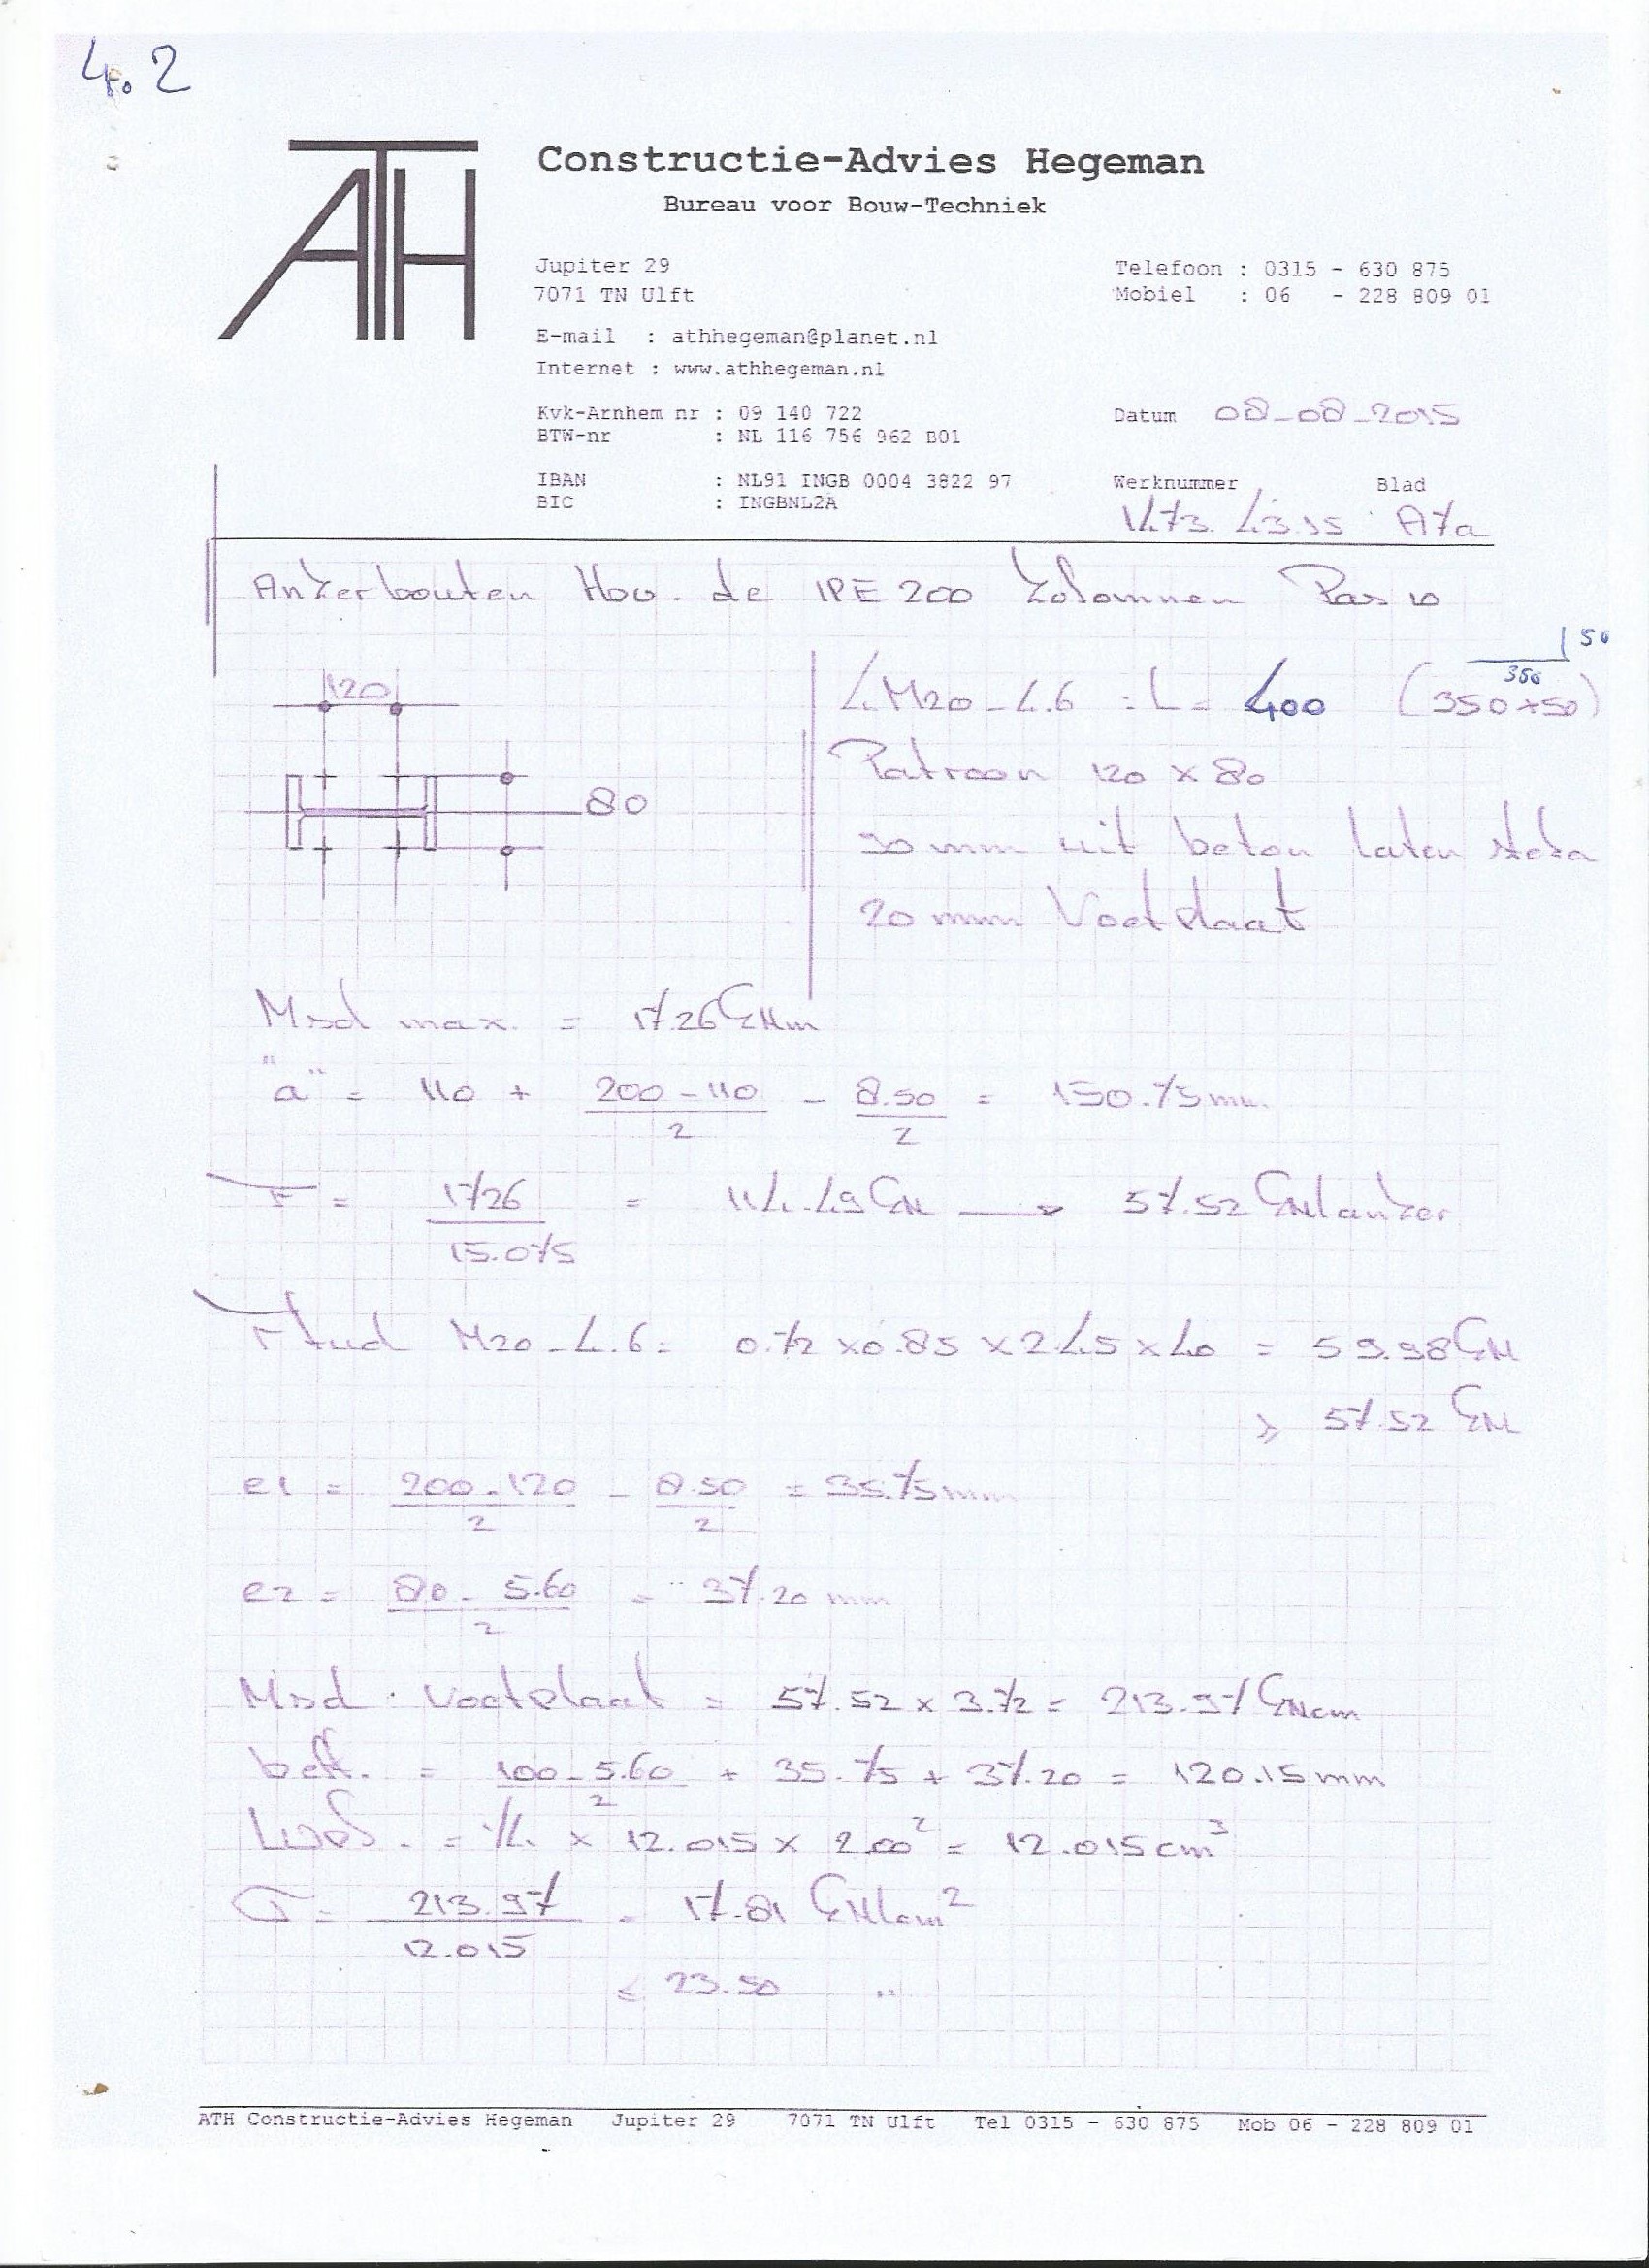 4.2
ATH
Constructie-Advies Hegeman
Bureau voor Bouw-Techniek
Jupiter 29
7071 TN Ulft
Telefoon : 0315 - 630 875
Mobiel : 06 - 228 809 01
E-mail : athhegeman@planet.nl
Internet : www.athhegeman.nl
Kvk-Arnhem nr : 09 140 722
BTW-nr : NL 116 756 962 B01
Datum 08-08-2015
IBAN : NL91 INGB 0004 3822 97
BIC : INGBNL2A
Werknummer Blad
1473.43.15 A7a
Ankerbouten tbv. de IPE 200 kolommen
120
80
50
350
4 M20-4.6 : L = 400 (350+50)
Patroon 120 x 80
mm uit beton laten steken
20 mm Voetplaat
Msd max. = 17.26 kNm
"a" = 110 + (200 - 110)/2 - 8.50/2 = 150.75 mm.
F = 1726/15.075 = 114.49 kN → 57.52 kN/anker
Ftud M20-4.6 = 0.72 x 0.85 x 2.45 x 40 = 59.98 kN
≥ 57.52 kN
e1 = (200-120)/2 - 8.50/2 = 35.75 mm
e2 = (80 - 5.60)/2 = 37.20 mm
Msd : Voetplaat = 57.52 x 3.72 = 213.97 kNcm
beff. = (100 - 5.60)/2 + 35.75 + 37.20 = 120.15 mm
Wpl. = 1/4 x 12.015 x 2.00² = 12.015 cm³
σ = 213.97/12.015 = 17.81 kN/cm²
≤ 23.50 "
ATH Constructie-Advies Hegeman Jupiter 29 7071 TN Ulft Tel 0315 - 630 875 Mob 06 - 228 809 01